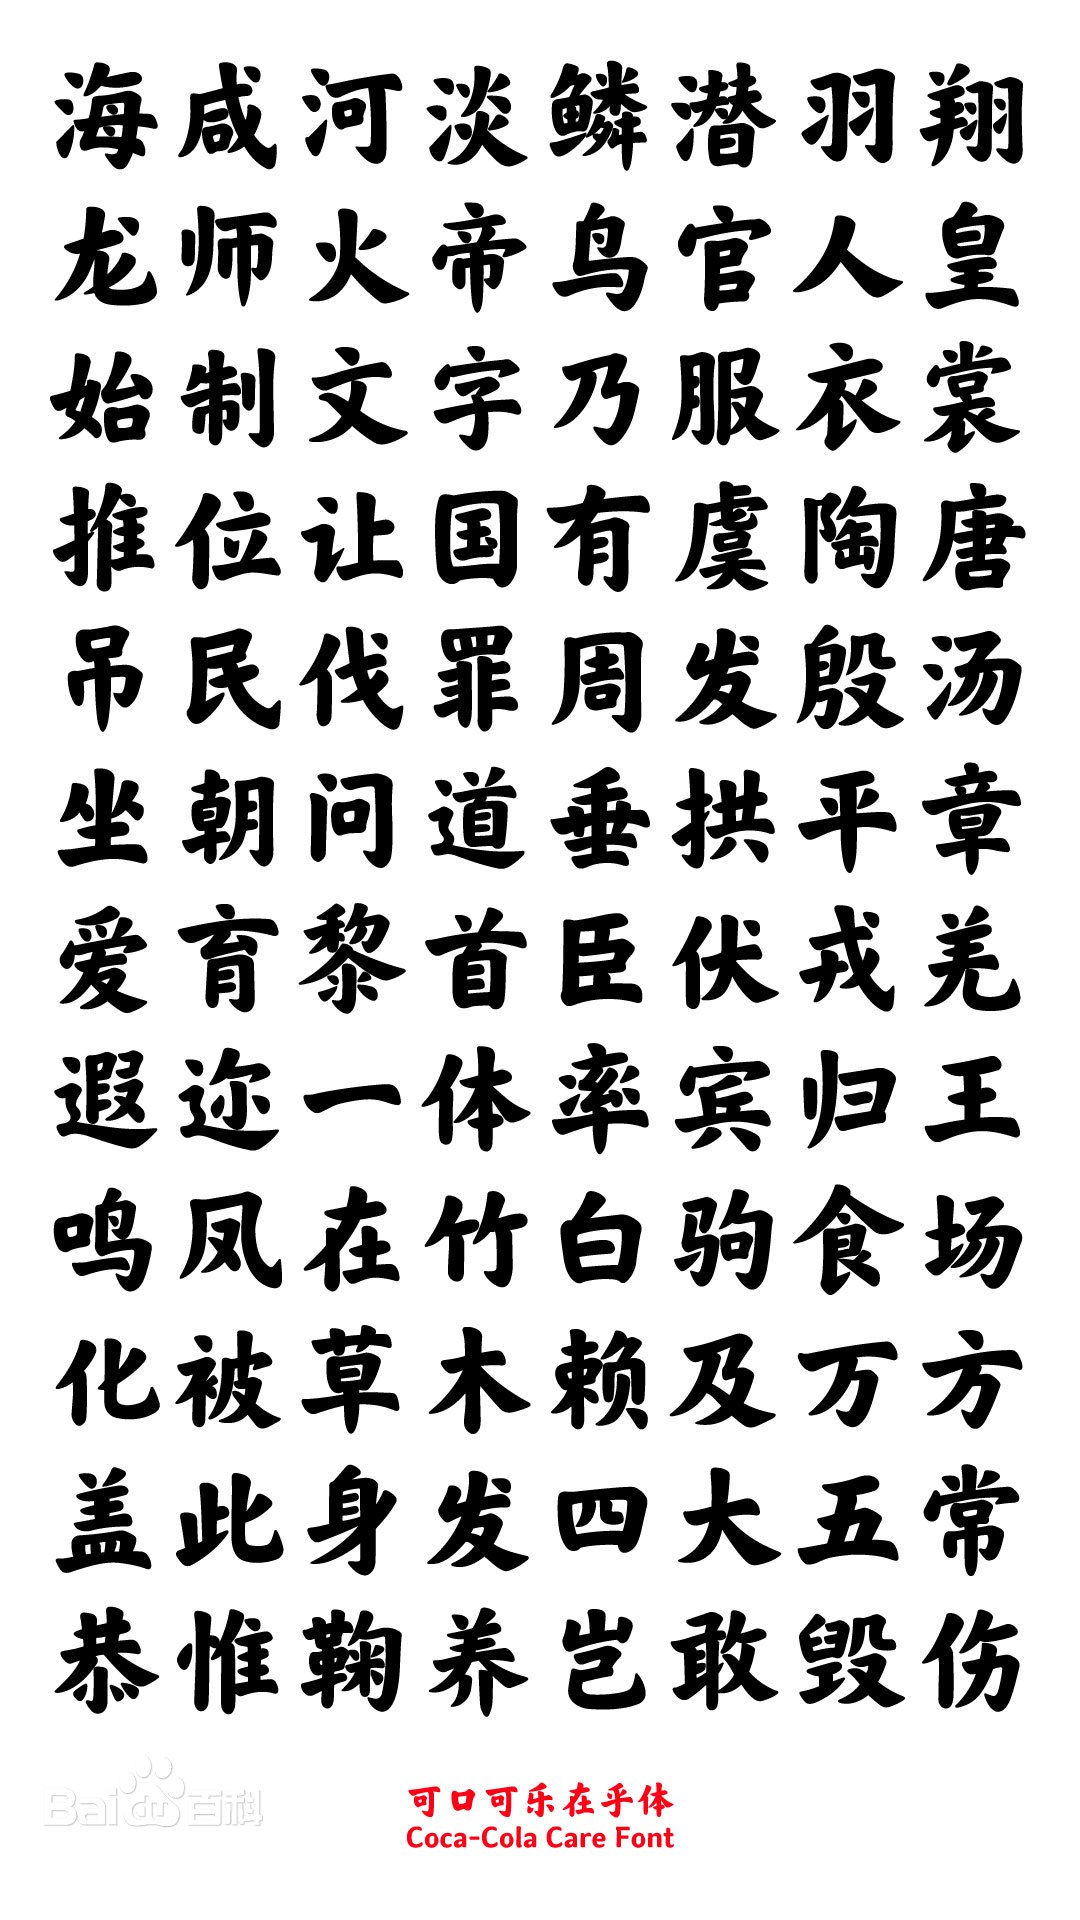 海咸河淡鳞潜羽翔
龙师火帝鸟官人皇
始制文字乃服衣裳
推位让国有虞陶唐
吊民伐罪周发殷汤
坐朝问道垂拱平章
爱育黎首臣伏戎羌
遐迩一体率宾归王
鸣凤在竹白驹食场
化被草木赖及万方
盖此身发四大五常
恭惟鞠养岂敢毁伤
Baidu百科
可口可乐在乎体
Coca-Cola Care Font